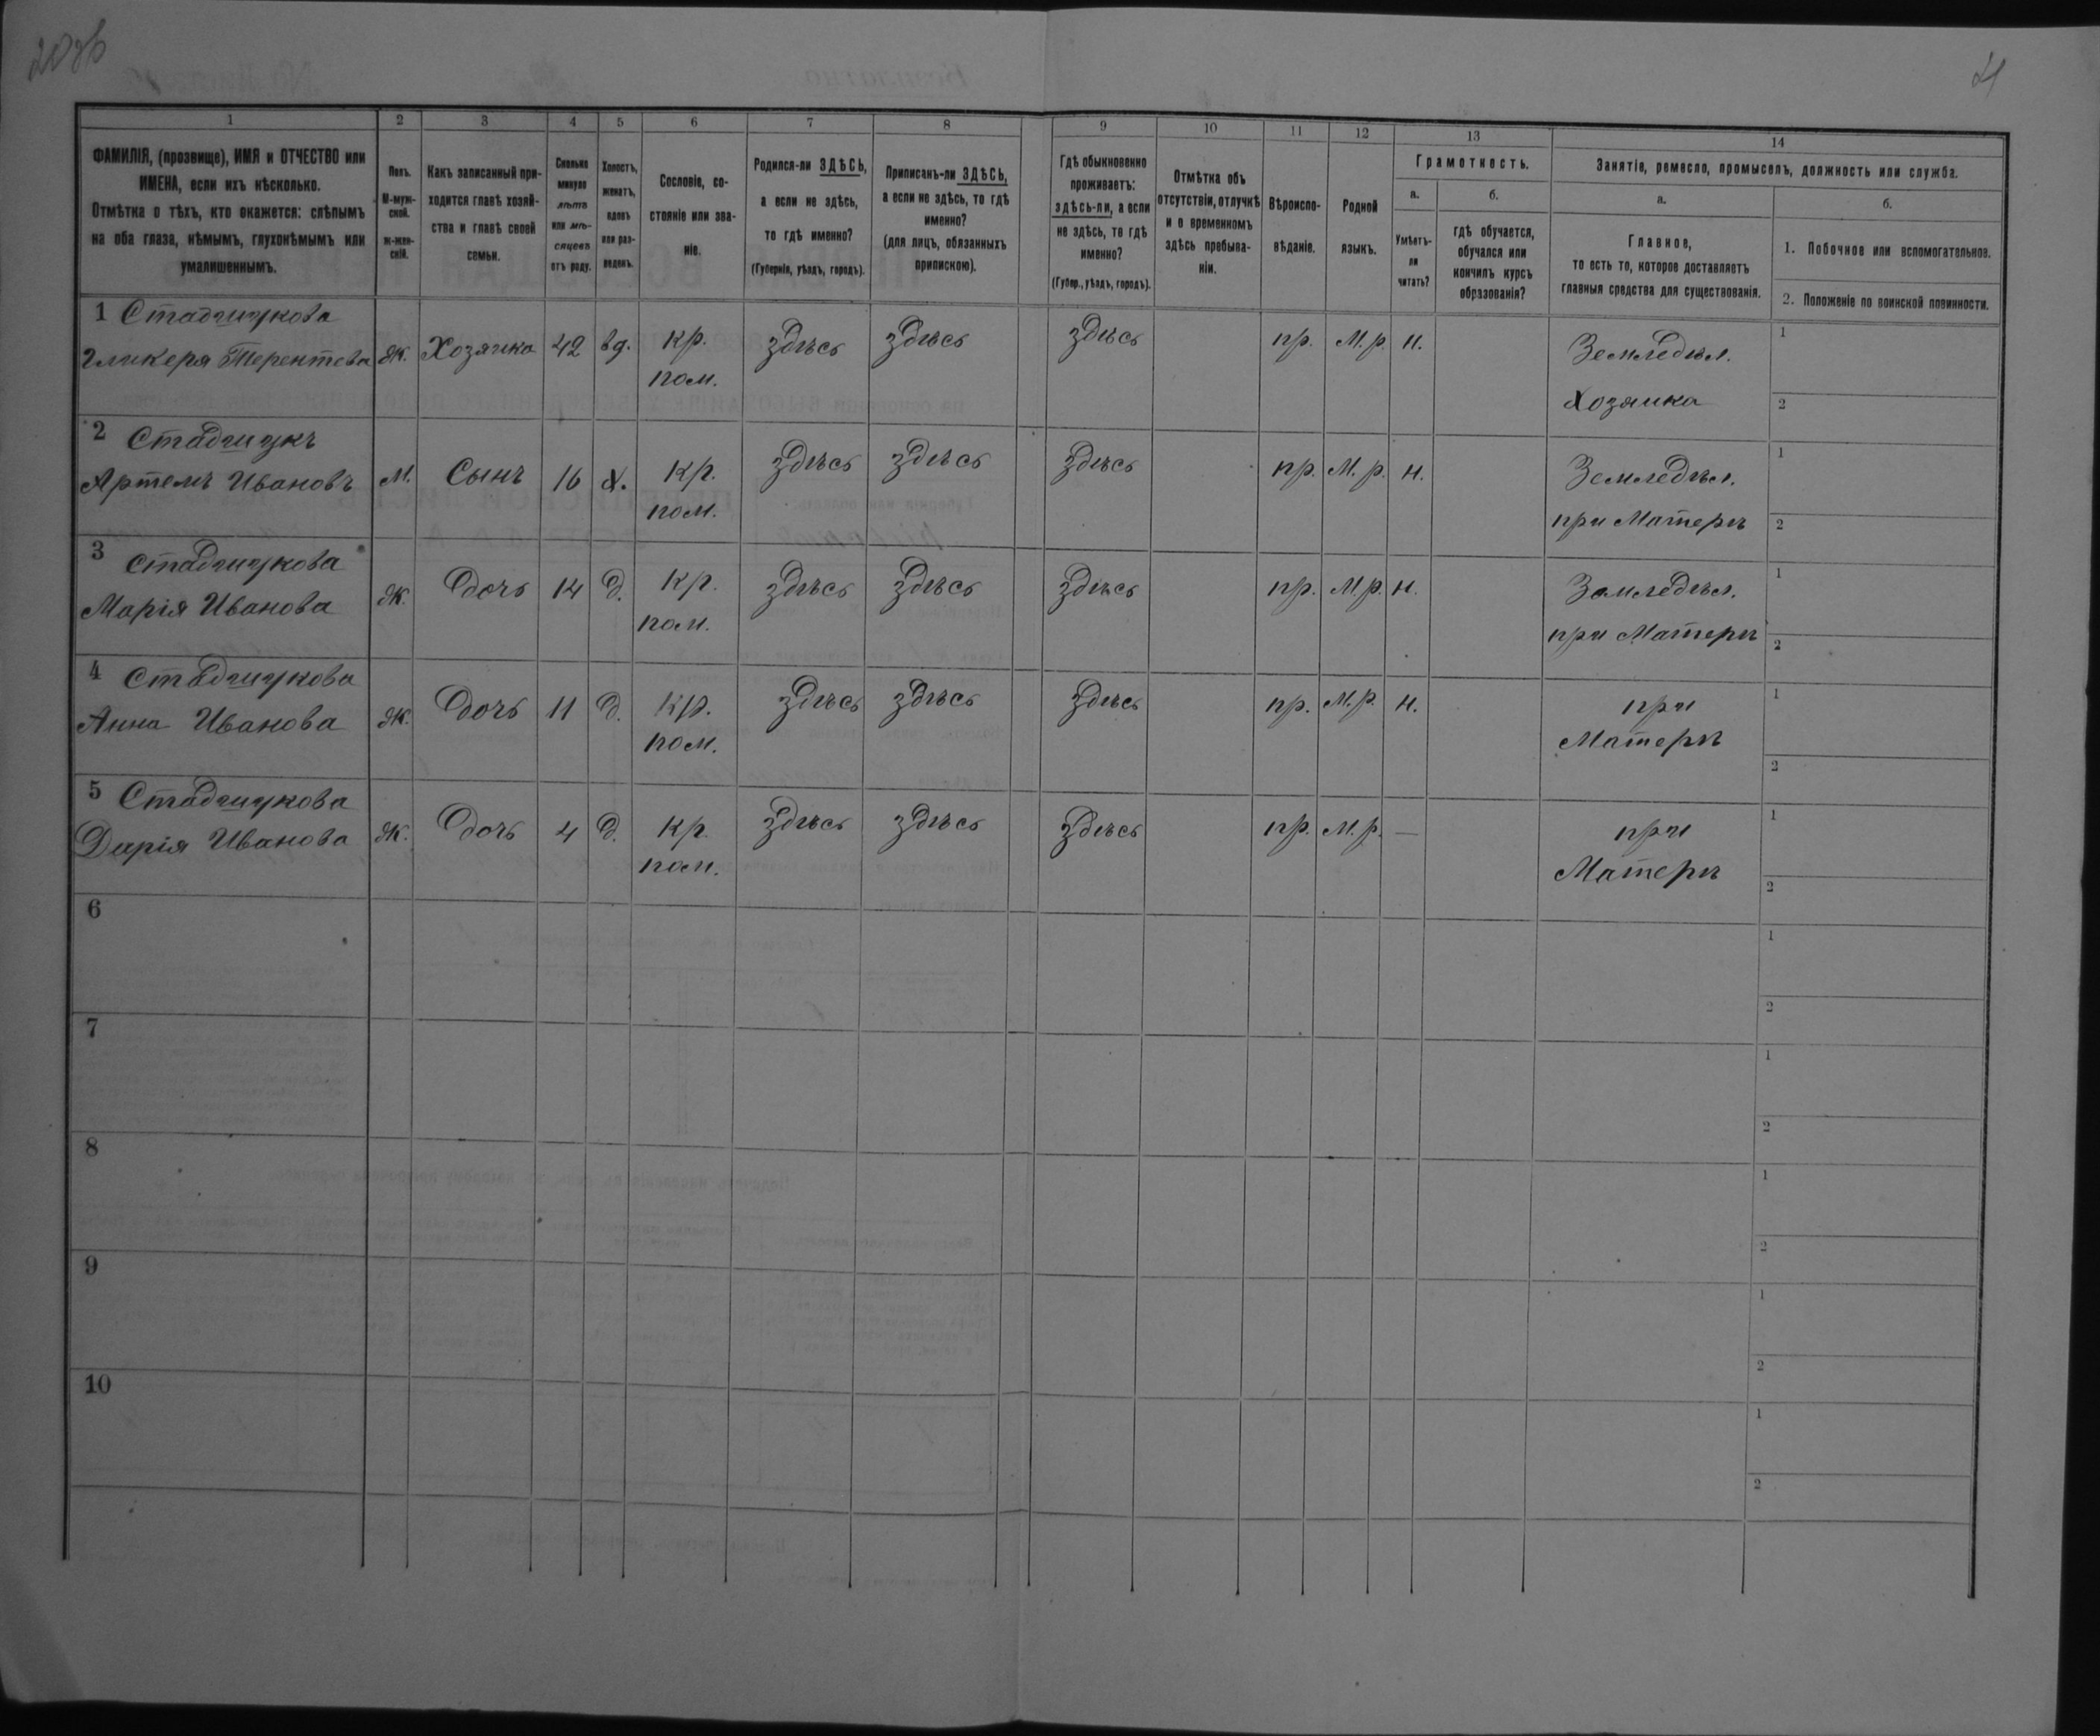 208б
4
1
2
3
4
5
6
7
8
9
10
11
12
13
14
ФАМИЛІЯ, (прозвище), ИМЯ и ОТЧЕСТВО или
ИМЕНА, если ихъ нѣсколько.
Отмѣтка о тѣхъ, кто окажется: слѣпымъ
на оба глаза, нѣмымъ, глухонѣмымъ или
умалишеннымъ.
Полъ.
М-муж-
ской.
ж-жен-
скій.
Какъ записанный при-
ходится главѣ хозяй-
ства и главѣ своей
семьи.
Сколько
минуло
лѣтъ
или мѣ-
сяцевъ
отъ роду.
Холостъ,
женатъ,
вдовъ
или раз-
веденъ.
Сословіе, со-
стояніе или зва-
ніе.
Родился-ли ЗДѢСЬ,
а если не здѣсь,
то гдѣ именно?
(Губернія, уѣздъ, городъ).
Приписанъ-ли ЗДѢСЬ,
а если не здѣсь, то гдѣ
именно?
(для лицъ, обязанныхъ
припискою).
Гдѣ обыкновенно
проживаетъ:
здѣсь-ли, а если
не здѣсь, то гдѣ
именно?
(Губер., уѣздъ, городъ).
Отмѣтка объ
отсутствіи, отлучкѣ
и о временномъ
здѣсь пребыва-
ніи.
Вѣроиспо-
вѣданіе.
Родной
языкъ.
Грамотность.
а.
Умѣетъ-
ли
читать?
б.
гдѣ обучается,
обучался или
кончилъ курсъ
образованія?
Занятіе, ремесло, промыселъ, должность или служба.
а.
Главное,
то есть то, которое доставляетъ
главныя средства для существованія.
б.
1. Побочное или вспомогательное.
2. Положеніе по воинской повинности.
1 Стадчицкова
Гликерія Терентева Ж. Хозяйка 42 вд. кр. пом. здѣсь здѣсь здѣсь пр. М.р. н. Земледѣл. Хозяйка 1 2
2 Стадчицкъ
Артемъ Ивановъ М. Сынъ 16 х. кр. пом. здѣсь здѣсь здѣсь пр. М.р. н. Земледѣл. при Матерѣ 1 2
3 Стадчицкова
Марія Иванова Ж. Дочь 14 д. кр. пом. здѣсь здѣсь здѣсь пр. М.р. н. Земледѣл. при Матерѣ 1 2
4 Стадчицкова
Анна Иванова Ж. Дочь 11 д. кр. пом. здѣсь здѣсь здѣсь пр. М.р. н. при Матерѣ 1 2
5 Стадчицкова
Дарія Иванова Ж. Дочь 4 д. кр. пом. здѣсь здѣсь здѣсь пр. М.р. — при Матерѣ 1 2
6 1 2
7 1 2
8 1 2
9 1 2
10 1 2